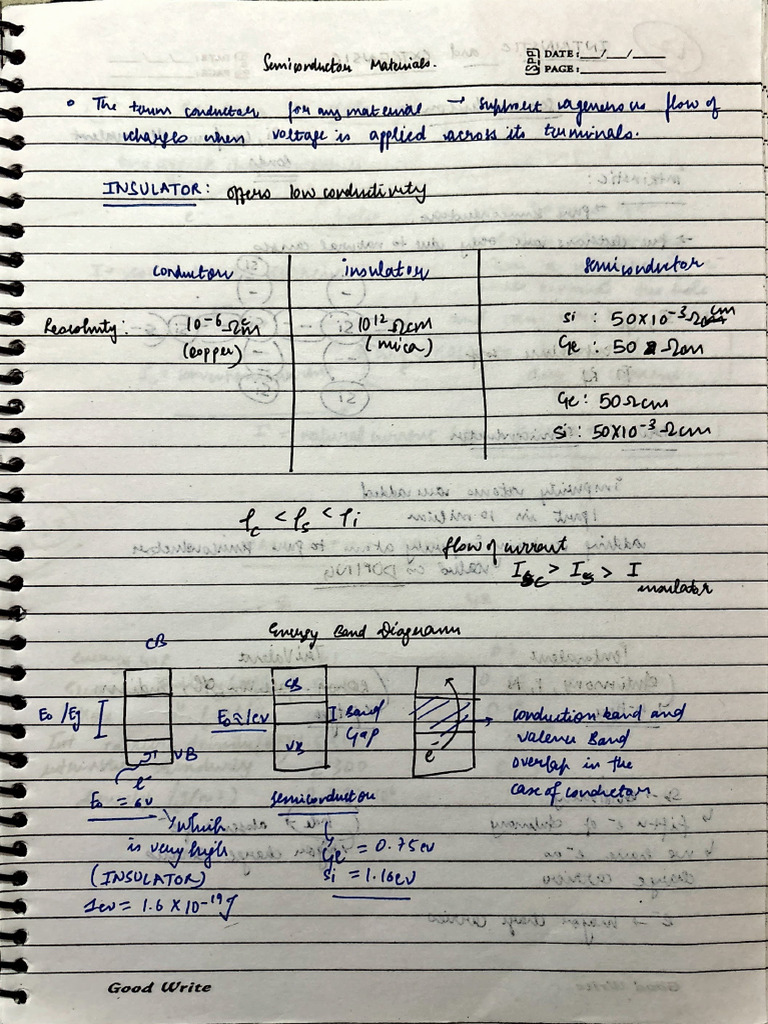 Semiconductor Materials.
DATE: __/__/__
PAGE:
• The term conductor for any material → support a generous flow of
charges when voltage is applied across its terminals.
INSULATOR: offers low conductivity
conductor insulator semiconductor
Resistivity: 10⁻⁶ Ωcm 10¹² Ωcm si : 50×10⁻³ Ωcm
(copper) (mica) Ge : 50 Ωcm
Ge : 50Ωcm
Si : 50×10⁻³ Ωcm
ρc < ρs < ρi
flow of current
Ic > Is > I insulator
Energy Band Diagram
CB
CB
Eo /Eg I Eo≈1ev I Band
Gap
VB VB e⁻
e⁻
conduction band and
valence Band
overlap in the
case of conductor
Eo = 6v semiconductor
↳ which
is very high
(INSULATOR)
1ev = 1.6 × 10⁻¹⁹J
Ge = 0.75ev
si = 1.16ev
Good Write